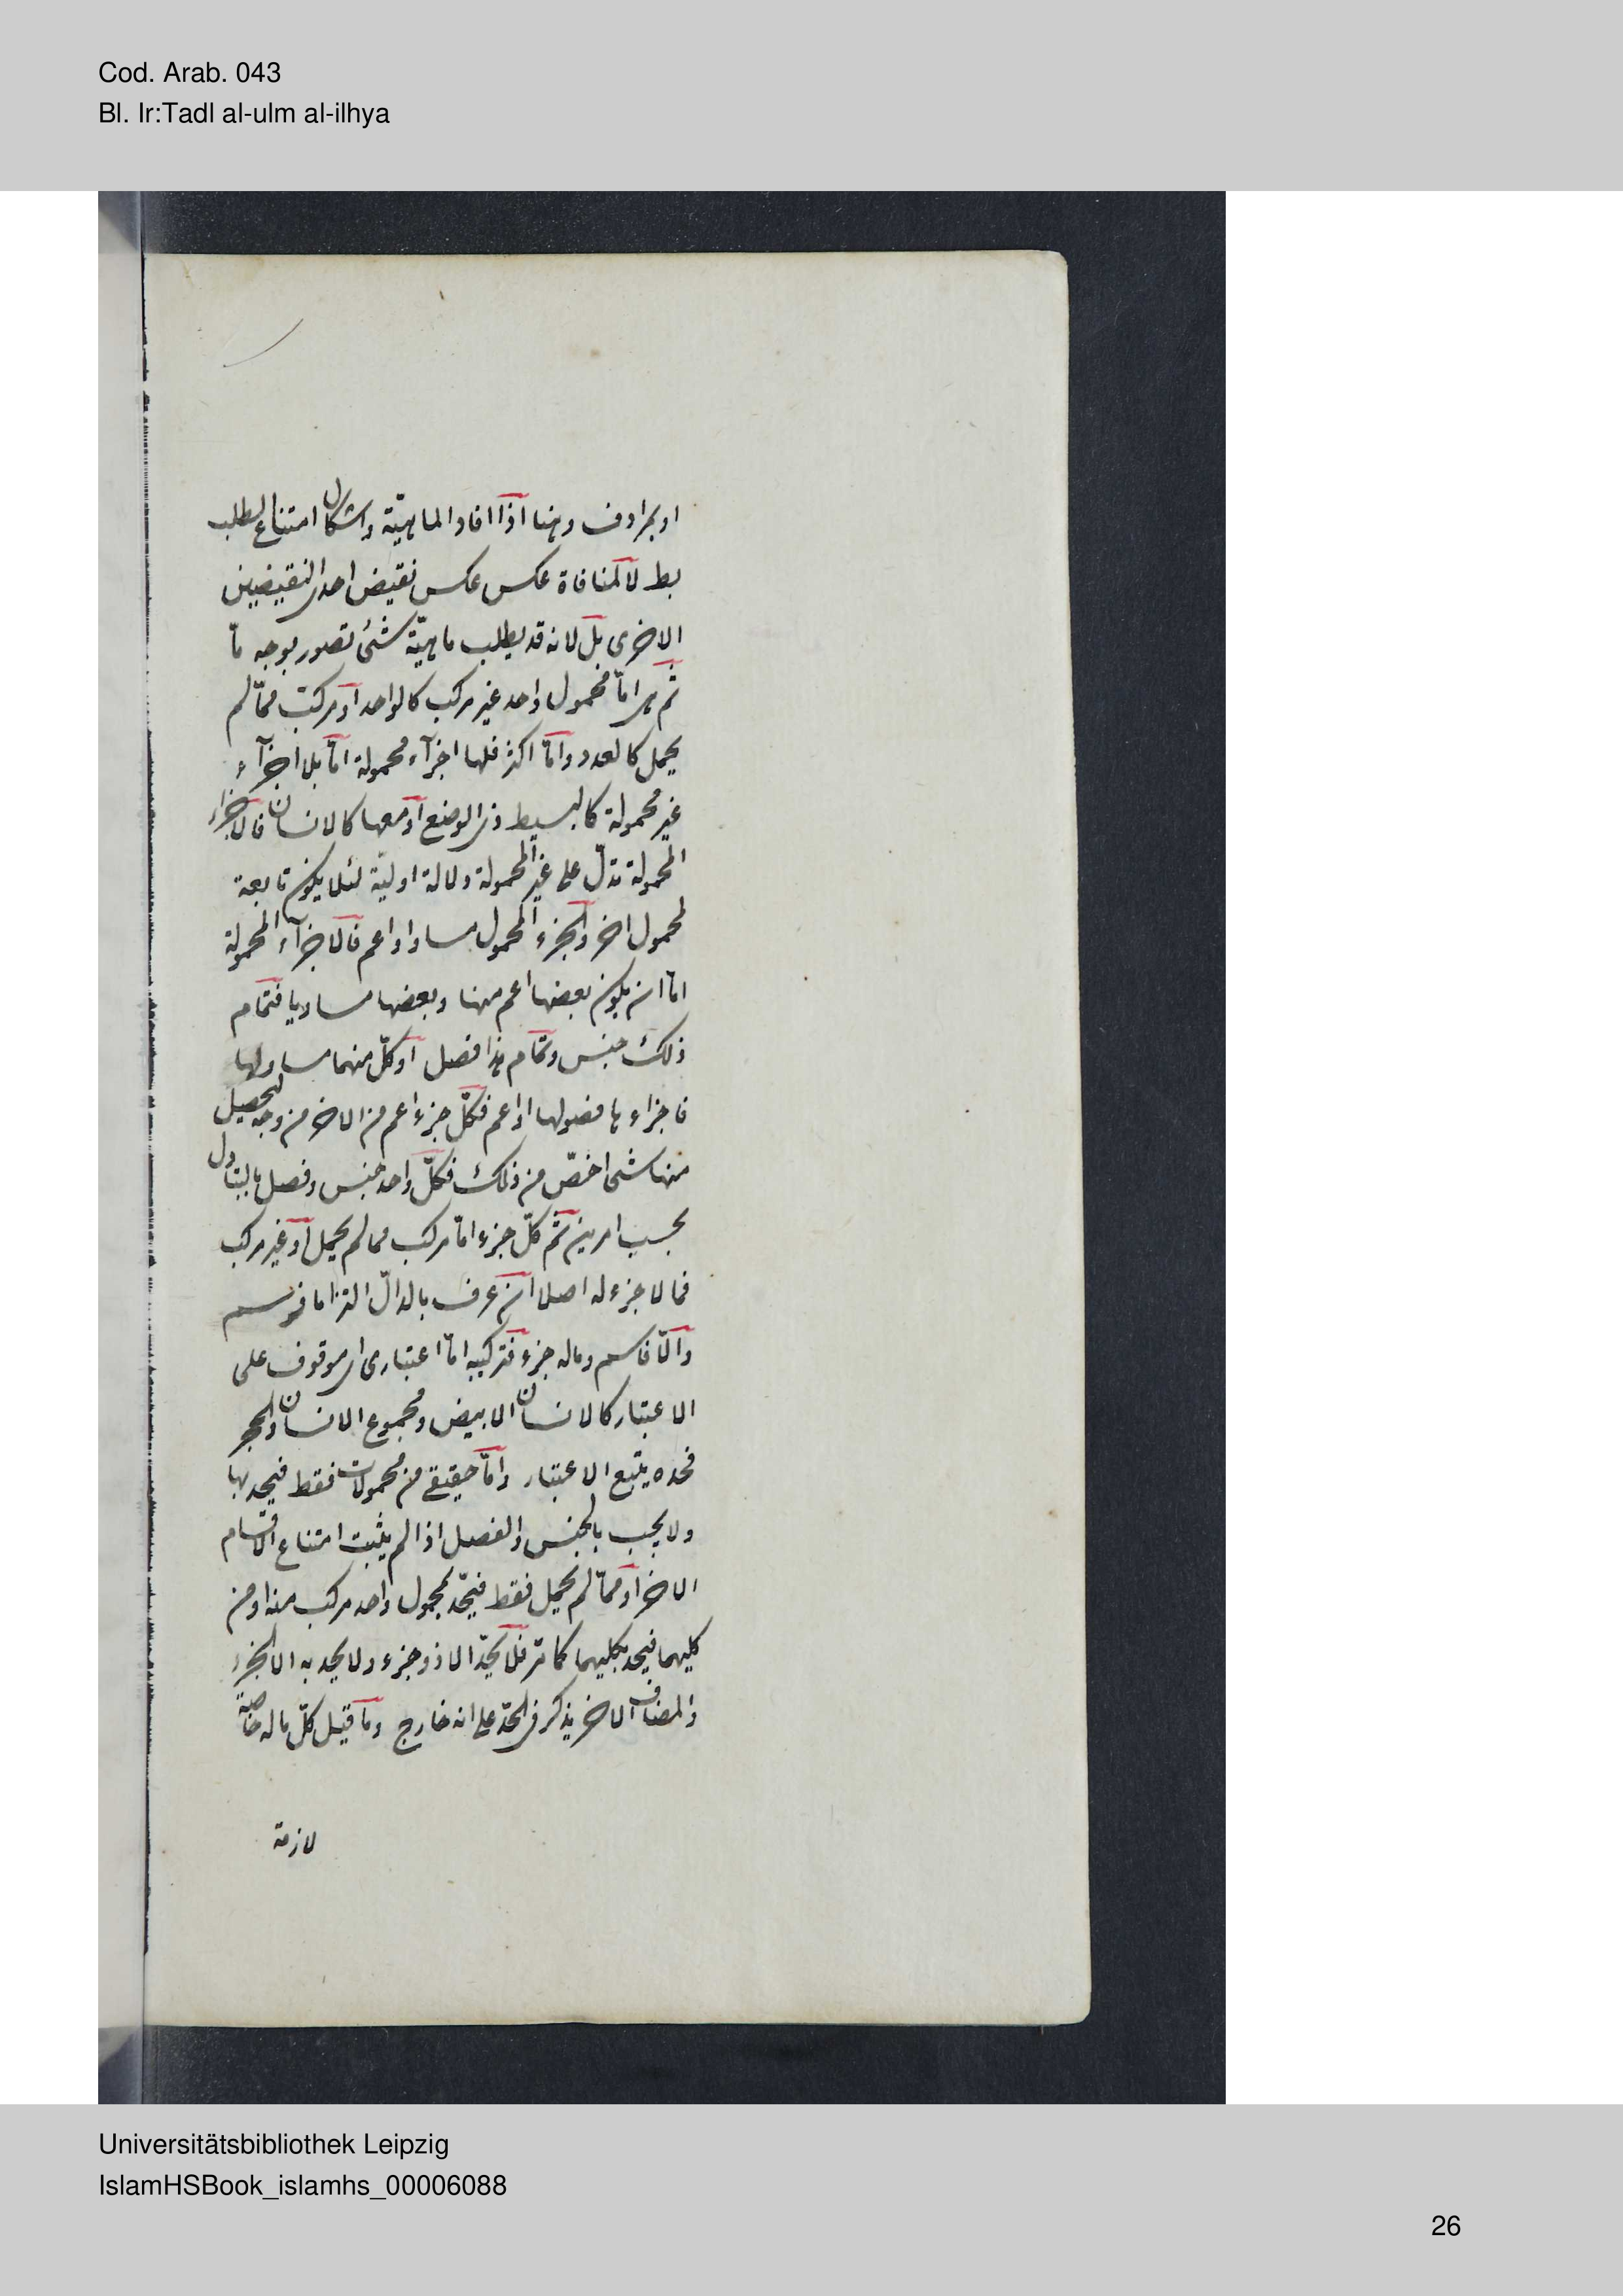 Cod. Arab. 043
Bl. Ir:Tadl al-ulm al-ilhya
او بمرادف وهنا اذا افاد الماهيّة واشكال امتناع الطلب
بط لا لمنافاة عكس عكس نقيض احدى النقيضين
الاخرى بل لانه قد يطلب ماهيّة شئ تصور بوجه مّا
ثم هى امّا محمول واحد غير مركب كالواحد او مركب ممّا لم
يحمل كالعدد وامّا اكثر فلها اجزآء محمولة امّا بلا اجزآء
غير محمولة كالبسيط ذى الوضع او معها كالانسان فالاجزاء
المحمولة تدلّ على غير المحمولة دلالة اوليّة لئلا يكون تابعة
لمحمول اخر والجزء المحمول مساو او اعم فالاجزآء المحمولة
امّا ان يكون بعضها اعم منها وبعضها مساويا فتمام
ذلك جنس وتمام هذا فصل او كلّ منهما مساو لها
فاجزاءها فصولها او اعم فكلّ جزء اعم من الاخر من وجه ليحصل
منها شئ اخصّ من ذلك فكلّ واحد جنس وفصل بالتبادل
بحسب امرين ثم كلّ جزء امّا مركب مما لم يحمل او غير مركب
فما لا جزء له اصلا ان عرف بالدالّ التزاما فرسم
والّا فاسم وماله جزء فتركيبه امّا اعتبارى اى موقوف على
الاعتبار كالانسان الابيض ومجموع الانسان والحجر
فحده يتبع الاعتبار وامّا حقيقى من محمولات فقط فيحد بها
ولا يجب بالجنس والفصل اذا لم يثبت امتناع الاقسام
الاخر او ممّا لم يحمل فقط فيحّد بمحمول واحد مركب منه او من
كليهما فيحد بكليهما كما مر فلا يحدّ الا ذو جزء ولا يحد به الا الجزء
والمضاف الاخر يذكر فى الحدّ على انه خارج وما قيل كلّ ما له خاصّة
لازمة
Universitätsbibliothek Leipzig
IslamHSBook_islamhs_00006088
26